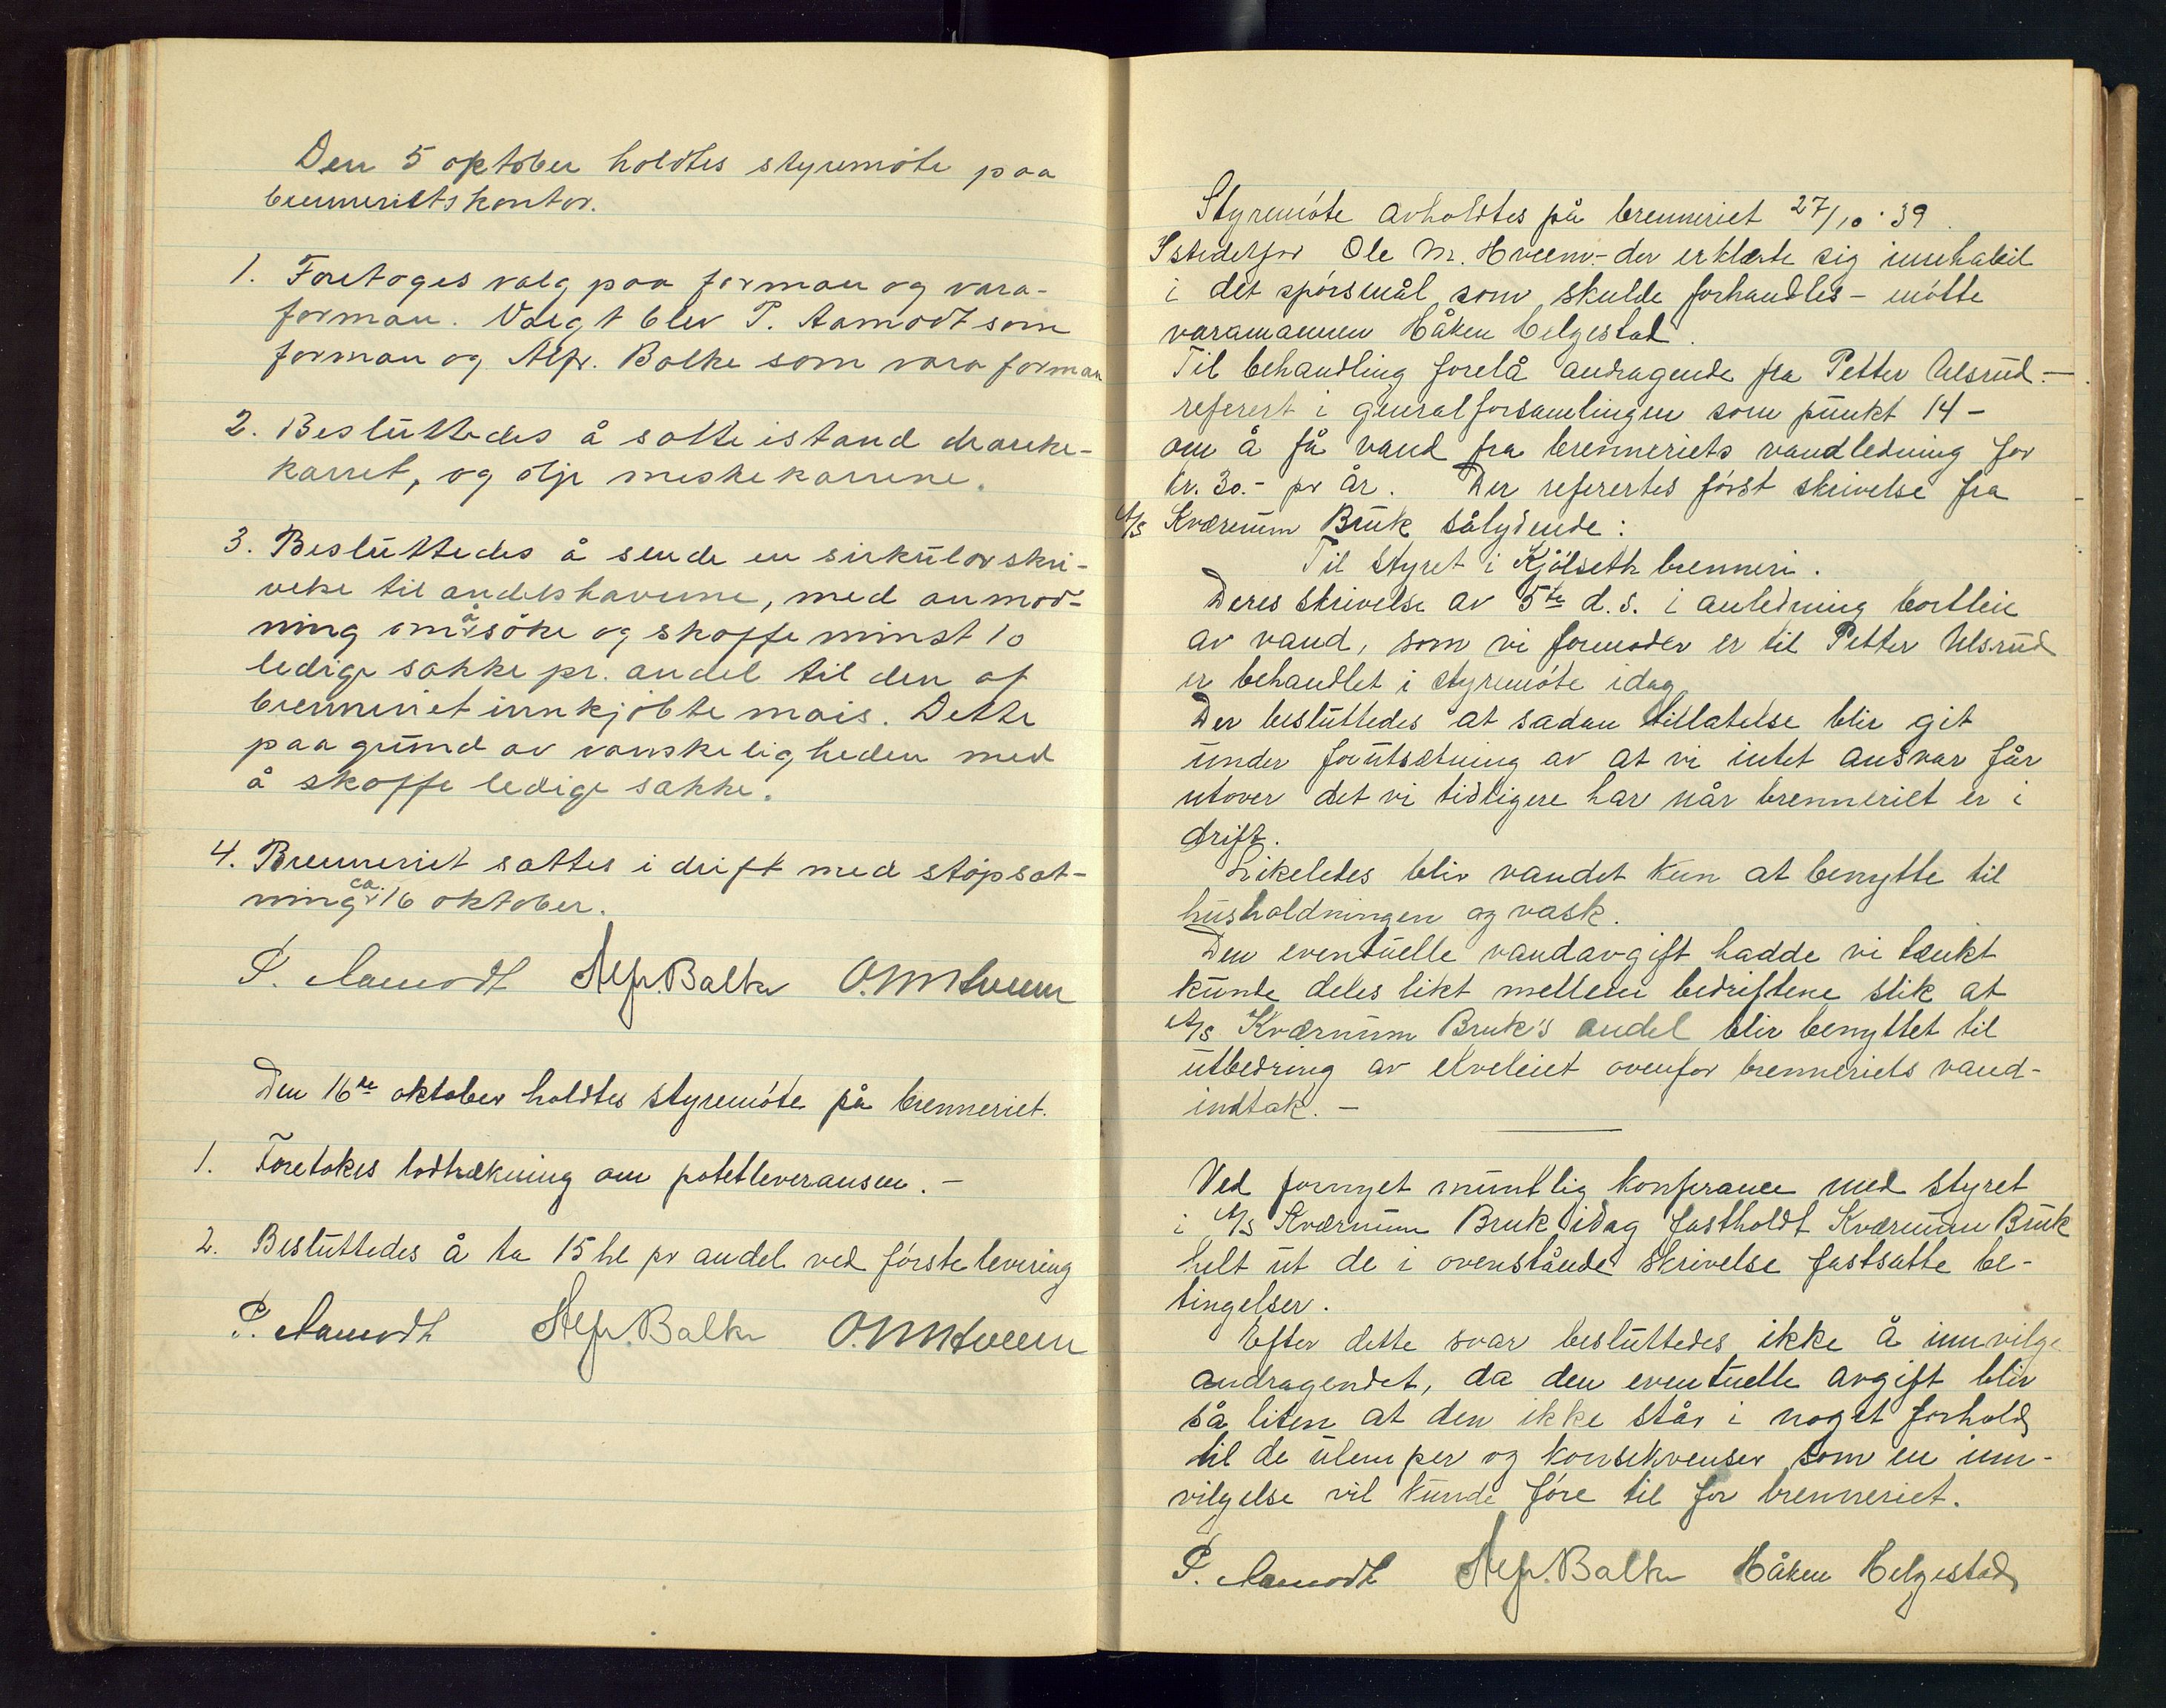 Den 5 oktober holdtes styremöte paa
brenneriets kontor.
1. Foretoges valg paa forman og vara-
forman. Valgt blev P. Aamodt som
forman og Alfr. Balke som vara forman
2. Besluttedes å sætte istand dranke-
karret, og olje meskekarrene.
3. Besluttedes å sende en sirkulærskri-
velse til andelshaverne, med anmod-
ning om å söke og skaffe minst 10
ledige sække pr. andel til den af
brenneriet innkjöbte mais. Dette
paa grund av vanskeligheden med
å skaffe ledige sække.
4. Brenneriet sættes i drift med stöpsæt-
ning ca. 16 oktober.
P. Aamodt Alfr. Balke O.M.Hveem
Den 16de oktober holdtes styremöte på brenneriet.
1. Foretokes lodtrækning om potetleveransen. –
2. Besluttedes å ta 15 hl pr andel ved förste levering
P. Aamodt Alfr. Balke O.M.Hveem
Styremöte avholdtes på brenneriet 27/10 . 39.
Istedetfor Ole M. Hveem – der erklærte sig innhabil
i det spörsmål som skulde forhandles – mötte
varamannen Håken Helgestad.
Til behandling forelå andragende fra Petter Ulsrud –
referert i genralforsamlingen som punkt 14 –
om å få vand fra brenneriets vandledning for
kr. 30.- pr år. Der refertes först skrivelse fra
A/S Kværnum Bruk sålydende:
Til Styret i Kjölseth brenneri.
Deres skrivelse av 5te d.s. i anledning bortleie
av vand, som vi formoder er til Petter Ulsrud
er behandlet i styremöte idag.
Der besluttedes at sadan tillatelse blir git
under forutsætning av at vi intet ansvar får
utover det vi tidligere har når brenneriet er i
drift.
Likeledes blir vandet kun at benytte til
husholdningen og vask.
Den eventuelle vandavgift hadde vi tænkt
kunde deles likt mellem bedriftene slik at
A/S Kværnum Bruk's andel blir benyttet til
utbedring av elveleiet ovenfor brenneriets vand-
indtak. –
Ved fornyet muntlig konferance med styret
i A/S Kværnum Bruk idag fastholdt Kværnum Bruk
helt ut de i ovenstående skrivelse fastsatte be-
tingelser.
Efter dette svar besluttedes ikke å innvilge
andragendet, da den eventuelle avgift blir
så liten at den ikke står i noget forhold
til de ulemper og konsekvenser som en inn-
vilgelse vil kunde före til for brenneriet.
P. Aamodt Alfr. Balke Håken Helgestad